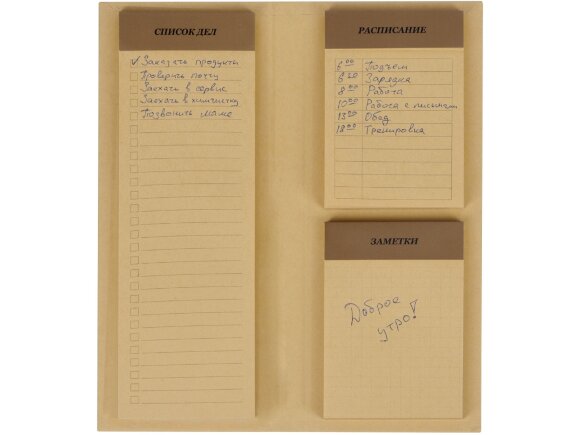 СПИСОК ДЕЛ
✓ Заказать продукты
Проверить почту
Заехать в сервис
Заехать в химчистку
Позвонить маме
РАСПИСАНИЕ
6 00 Подъем
6 20 Зарядка
8 00 Работа
10 00 Работа с письмами
13 00 Обед
18 00 Тренировка
ЗАМЕТКИ
Доброе
утро!